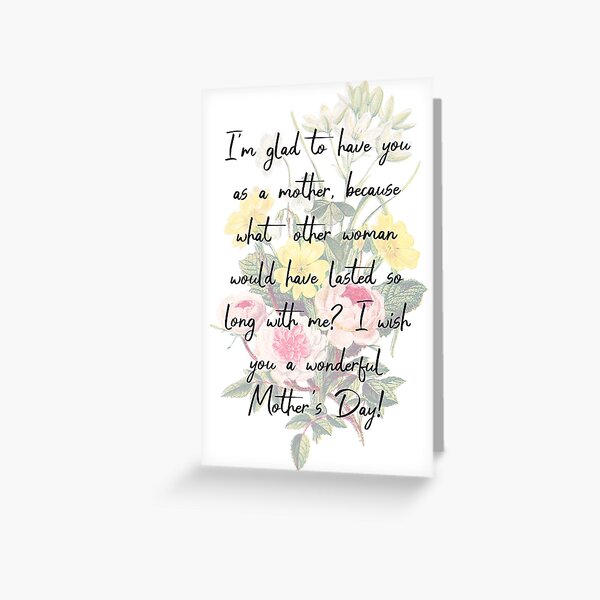 I'm glad to have you
as a mother, because
what other woman
would have lasted so
long with me? I wish
you a wonderful
Mother's Day!